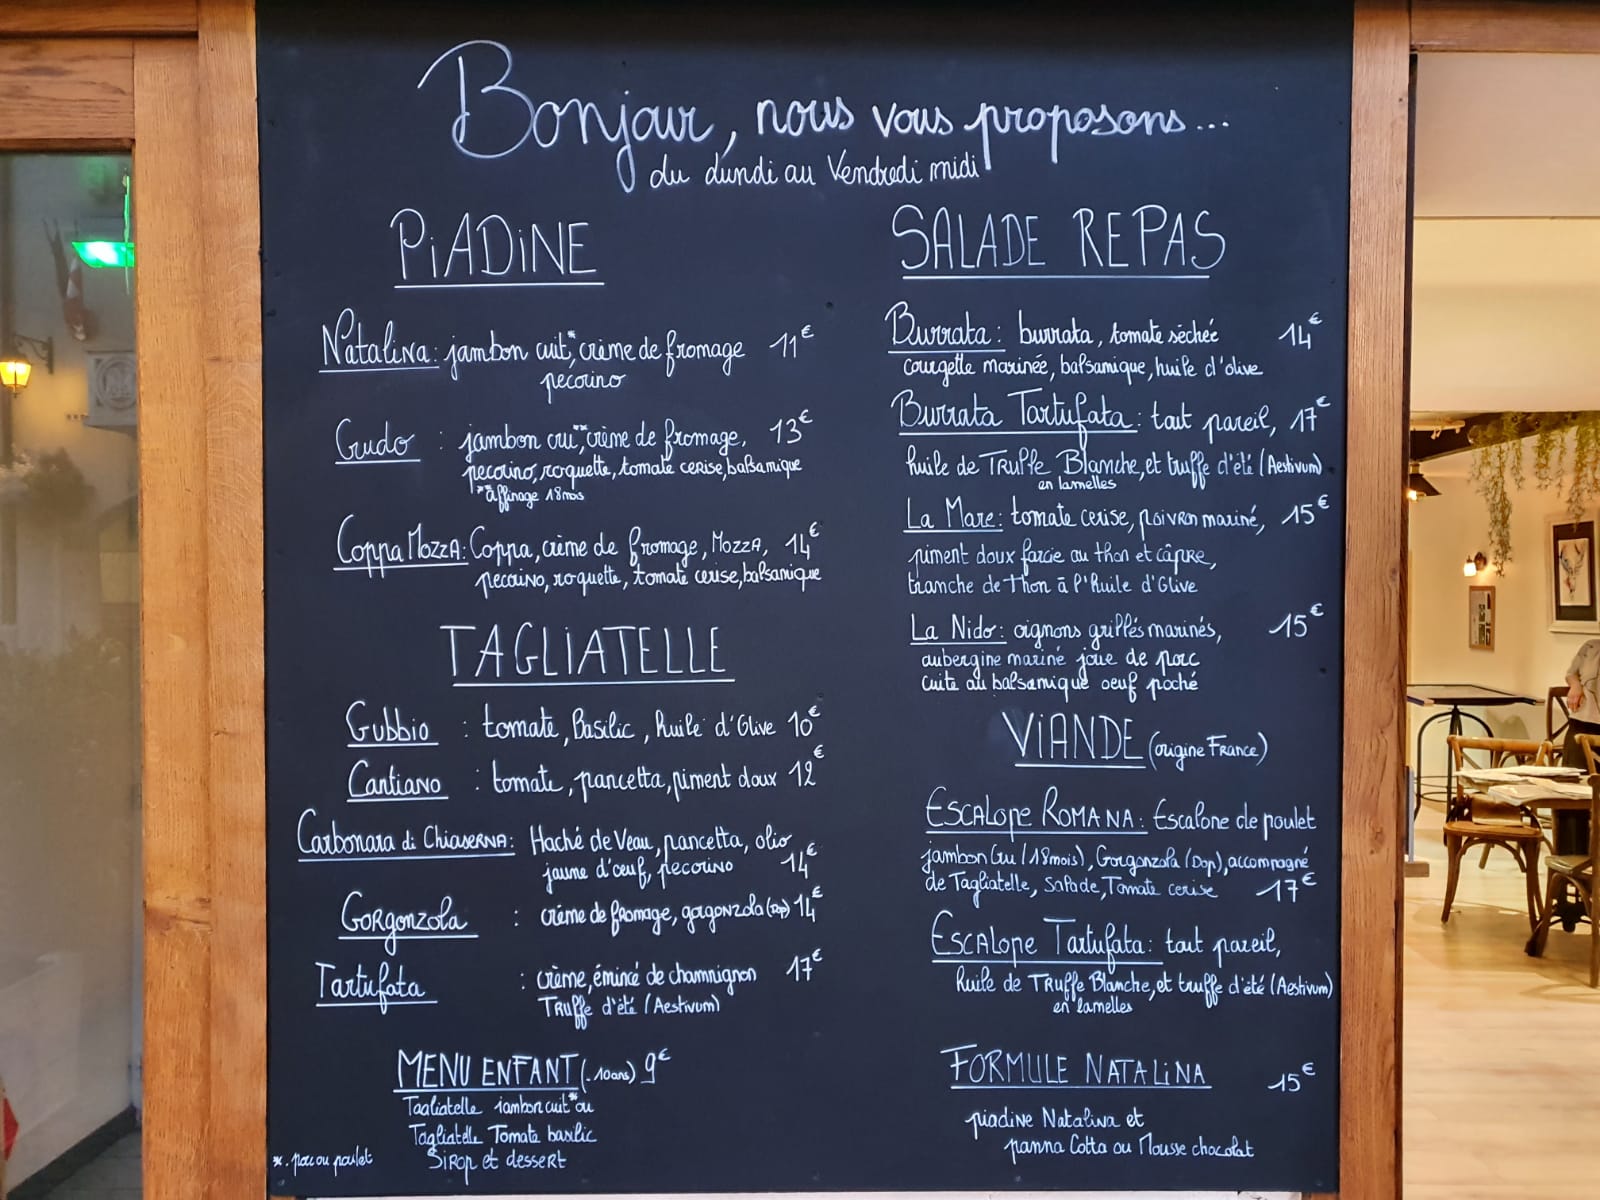 Bonjour, nous vous proposons...
du Lundi au Vendredi midi
PiADiNE
Natalina : jambon cuit*, crème de fromage 11€
pecorino
Gudo : jambon cru**, crème de fromage, 13€
pecorino, roquette, tomate cerise, balsamique
**affinage 18 mois
Coppa MozzA : Coppa, crème de fromage, MozzA, 14€
pecorino, roquette, tomate cerise, balsamique
TAGLiATELLE
Gubbio : tomate, Basilic, Huile d'Olive 10€
Cantiano : tomate, pancetta, piment doux 12€
Carbonara di ChiaserNA : Haché de Veau, pancetta, olio
jaune d'œuf, pecorino 14€
Gorgonzola : crème de fromage, gorgonzola (Dop) 14€
Tartufata : crème, émincé de champignon 17€
Truffe d'été (Aestivum)
MENU ENFANT (-10ans) 9€
Tagliatelle jambon cuit* ou
Tagliatelle Tomate basilic
Sirop et dessert
*. porc ou poulet
SALADE REPAS
Burrata : burrata, tomate séchée 14€
courgette marinée, balsamique, huile d'olive
Burrata Tartufata : tout pareil, 17€
huile de Truffe Blanche, et truffe d'été (Aestivum)
en lamelles
La Mare : tomate cerise, poivron mariné, 15€
piment doux farcie au thon et câpre,
tranche de Thon à l'Huile d'Olive
La Nido : oignons grillés marinés, 15€
aubergine mariné joue de porc
cuite au balsamique oeuf poché
ViANDE (origine France)
EscAlope RomaNA : Escalope de poulet
jambon Cru (18mois), Gorgonzola (Dop), accompagné
de Tagliatelle, Salade, Tomate cerise 17€
EscAlope Tartufata : tout pareil,
huile de Truffe Blanche, et truffe d'été (Aestivum)
en lamelles
FORMULE NATALiNA 15€
piadine Natalina et
panna Cotta ou Mousse chocolat